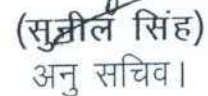 (सुनील सिंह)
अनु सचिव।